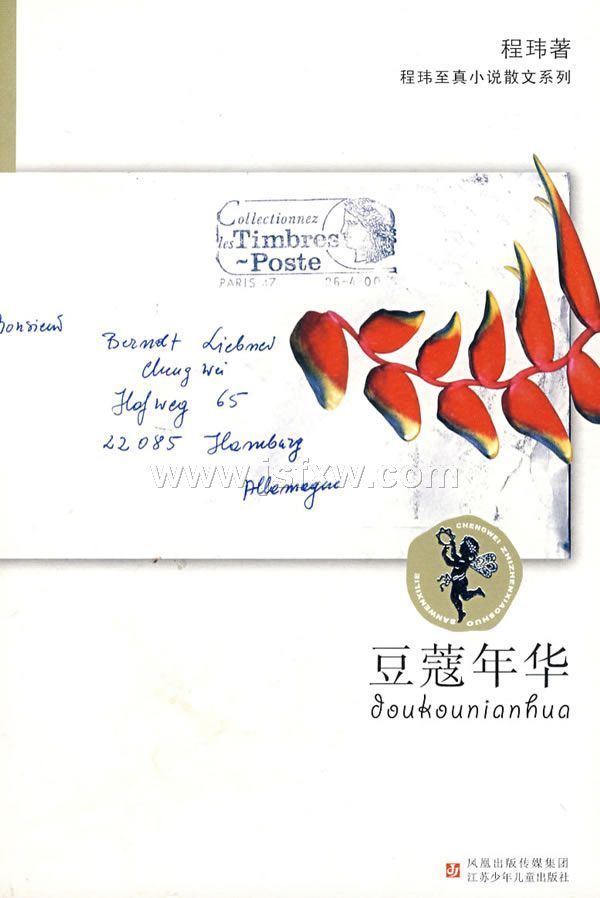 程玮著
程玮至真小说散文系列
Collectionnez
les Timbres
~Poste
PARIS 17 26-4 00
Monsieur
Berndt Liebner
Cheng Wei
Hofweg 65
22085 Hamburg
Allemagne
www.jsfxw.com
CHENGWEI ZHIZHENXIAOSHUO SANWENXILIE
豆蔻年华
doukounianhua
凤凰出版传媒集团
江苏少年儿童出版社